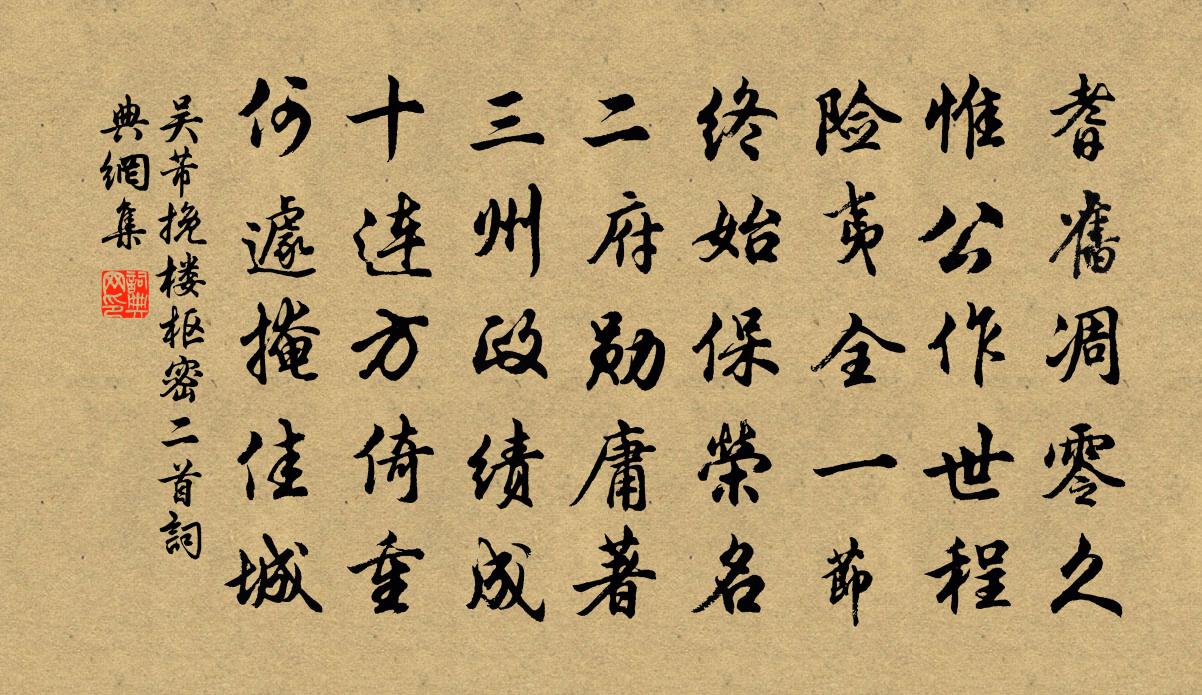 耆舊凋零久
惟公作世程
险夷全一節
终始保榮名
二府勋庸著
三州政绩成
十连方倚重
何遽掩佳城
吴芾挽楼枢密二首詞
典網集
詞典网印